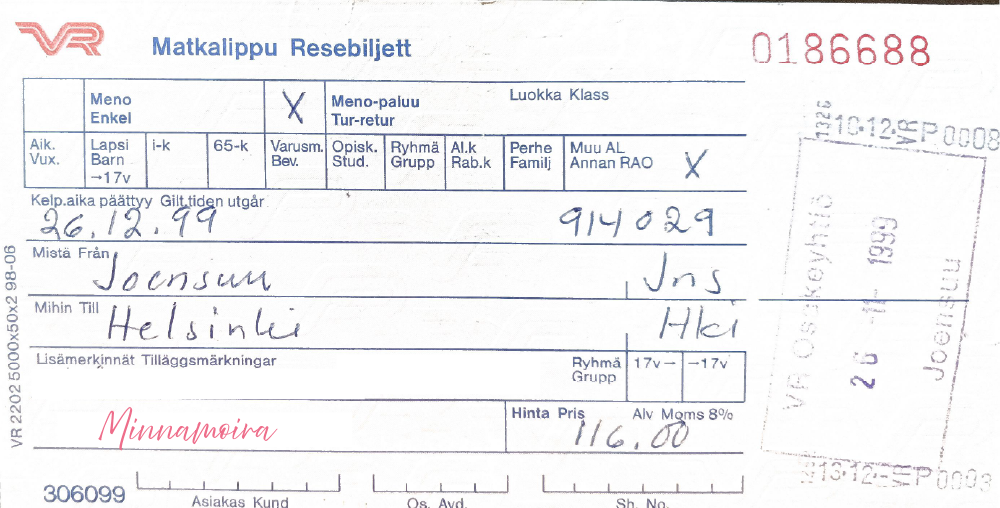 VR Matkalippu Resebiljett 0186688
Meno Enkel X Meno-paluu Tur-retur Luokka Klass
Aik. Vux. Lapsi Barn →17v i-k 65-k Varusm. Bev. Opisk. Stud. Ryhmä Grupp Al.k Rab.k Perhe Familj Muu AL Annan RAO X
Kelp.aika päättyy Gilt.tiden utgår
26.12.99 914029
Mistä Från Joensuu Jns
Mihin Till Helsinki Hki
Lisämerkinnät Tilläggsmärkningar Ryhmä Grupp 17v– –17v
Hinta Pris Alv Moms 8%
Minnamoira 116.00
306099 Asiakas Kund Os. Avd. Sh. No.
VR 2202 5000x50x2 98-08
1326 10.12. VR P 0008
VR Osakeyhtiö
26 -11- 1999
Joensuu
13.12. VR P 0003